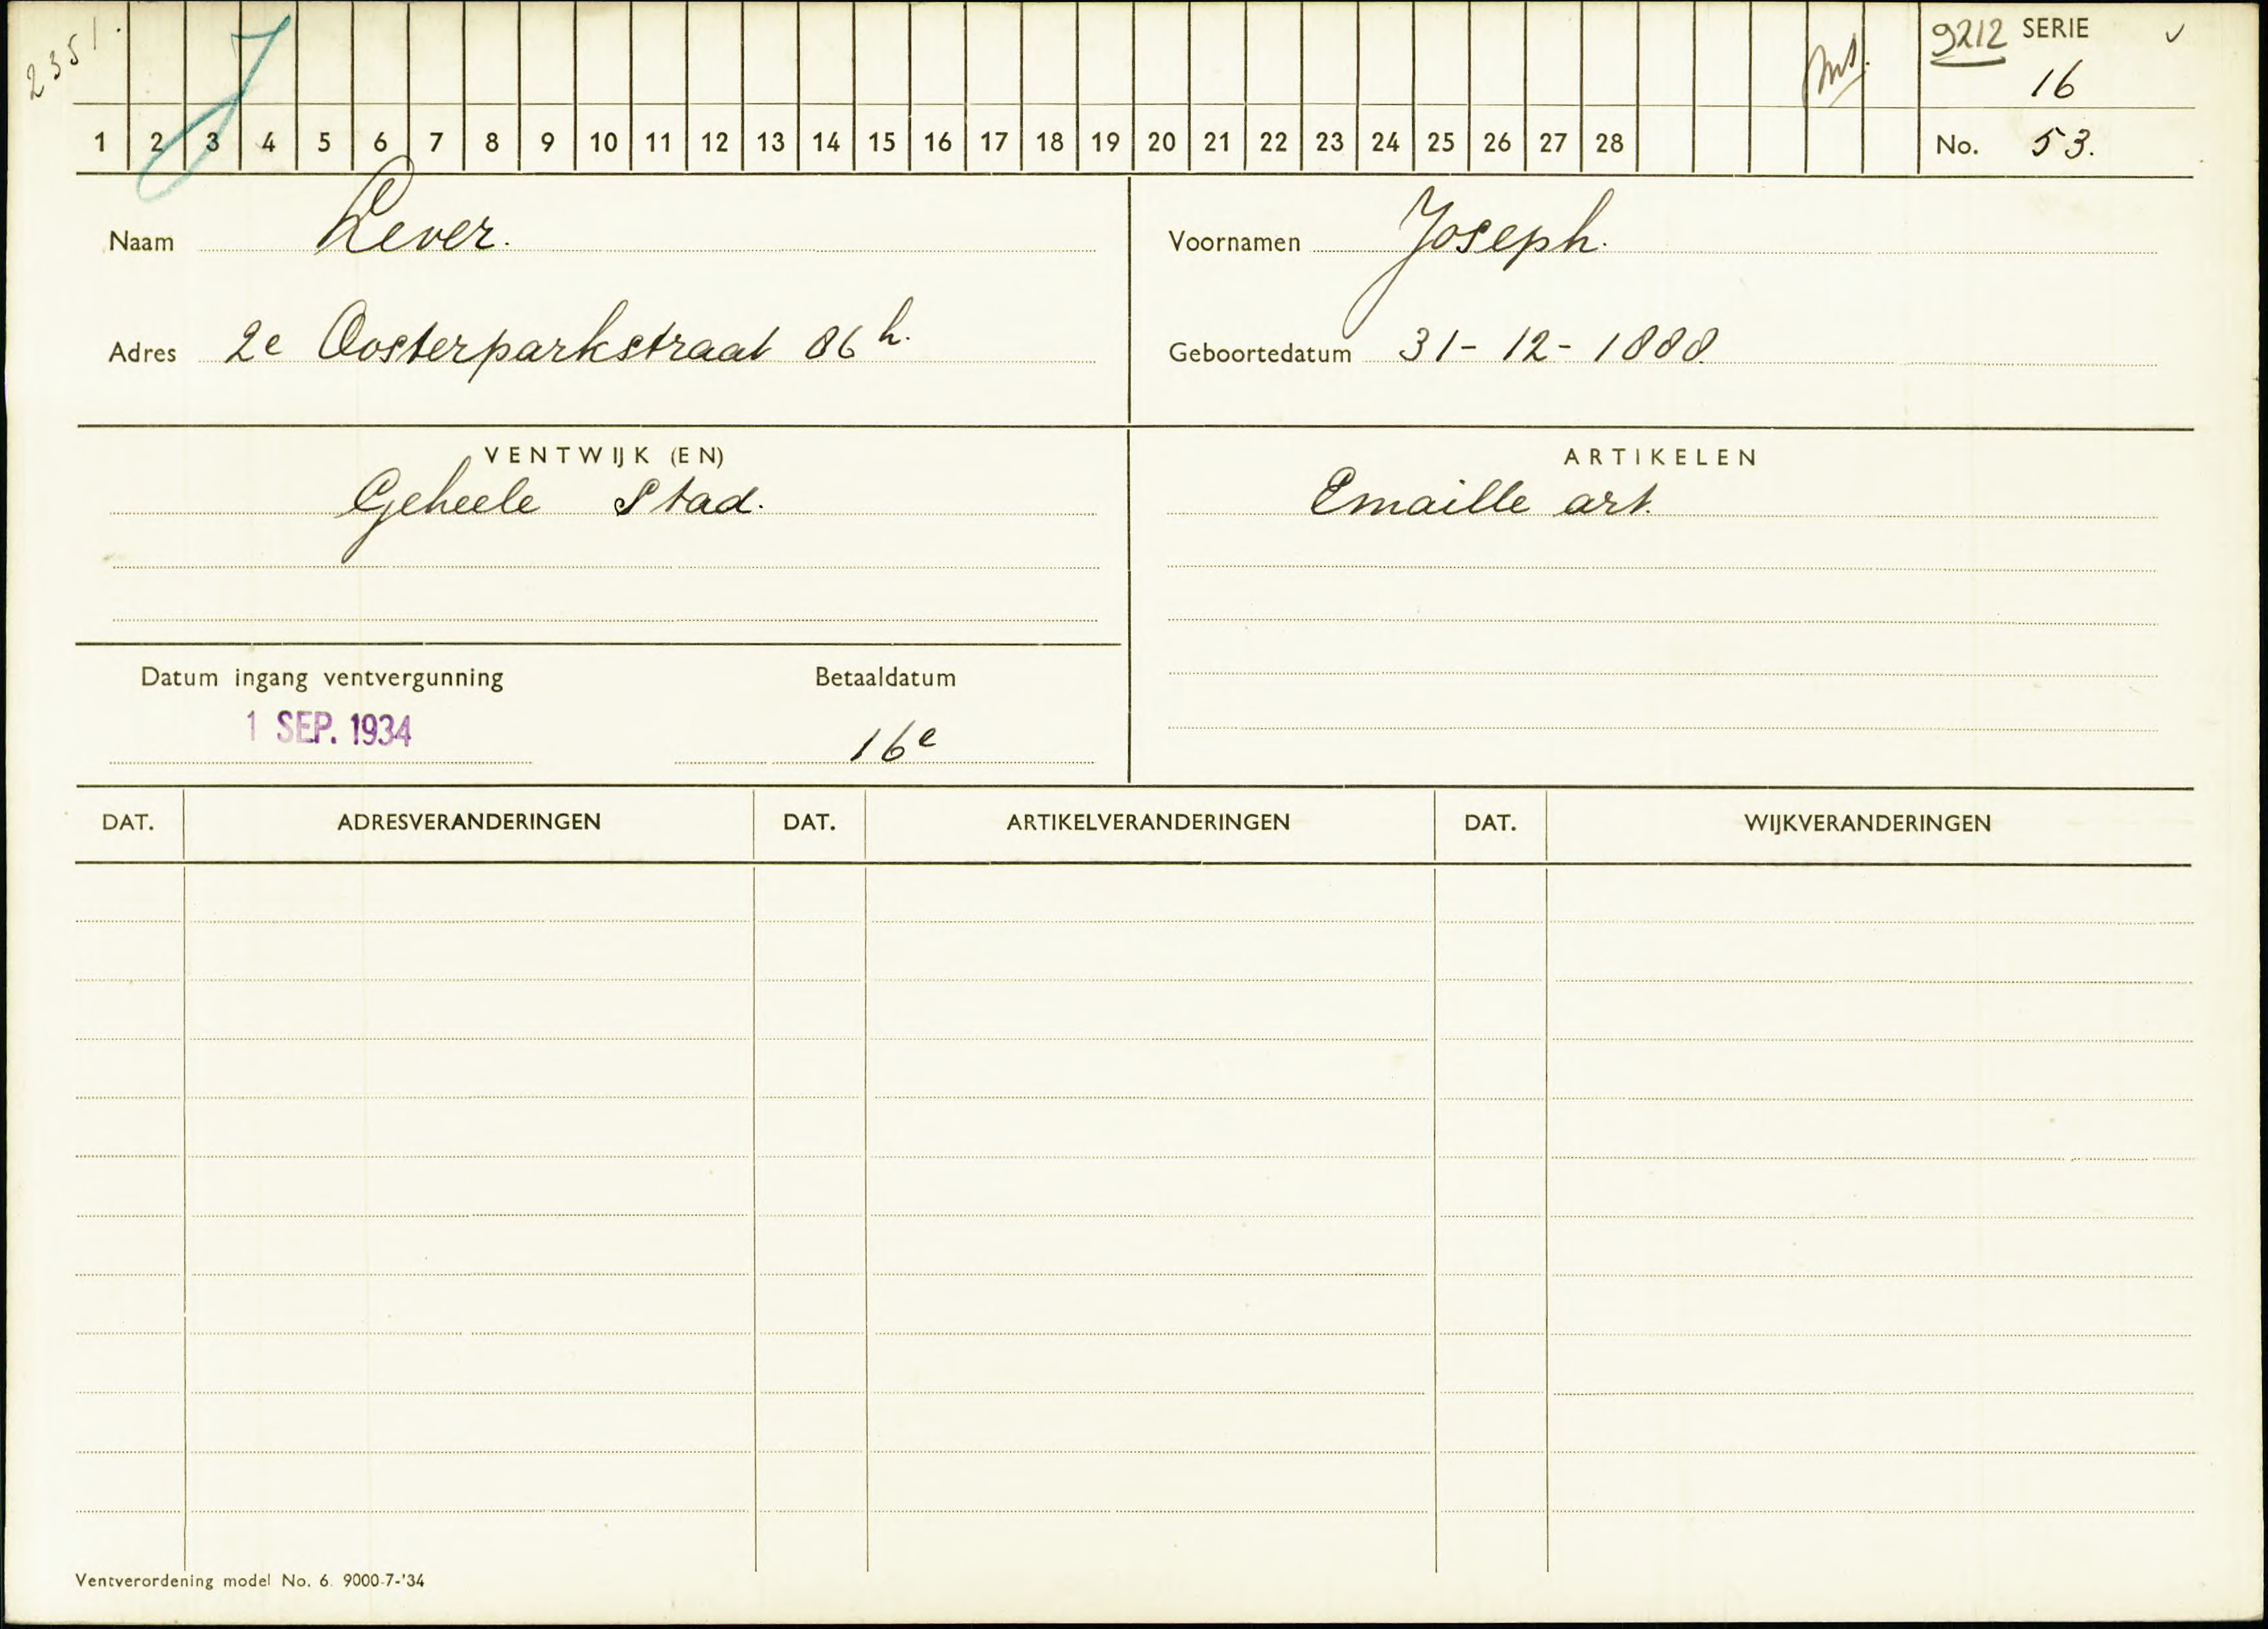 2351.
J
9212 SERIE
16
1 2 3 4 5 6 7 8 9 10 11 12 13 14 15 16 17 18 19 20 21 22 23 24 25 26 27 28 No. 53.
Naam Lever. Voornamen Joseph.
Adres 2e Oosterparkstraat 86 h. Geboortedatum 31-12-1888
VENTWIJK (EN) ARTIKELEN
Geheele Stad. Emaille art.
Datum ingang ventvergunning Betaaldatum
1 SEP. 1934 16e
DAT. ADRESVERANDERINGEN DAT. ARTIKELVERANDERINGEN DAT. WIJKVERANDERINGEN
Ventverordening model No. 6. 9000-7-'34